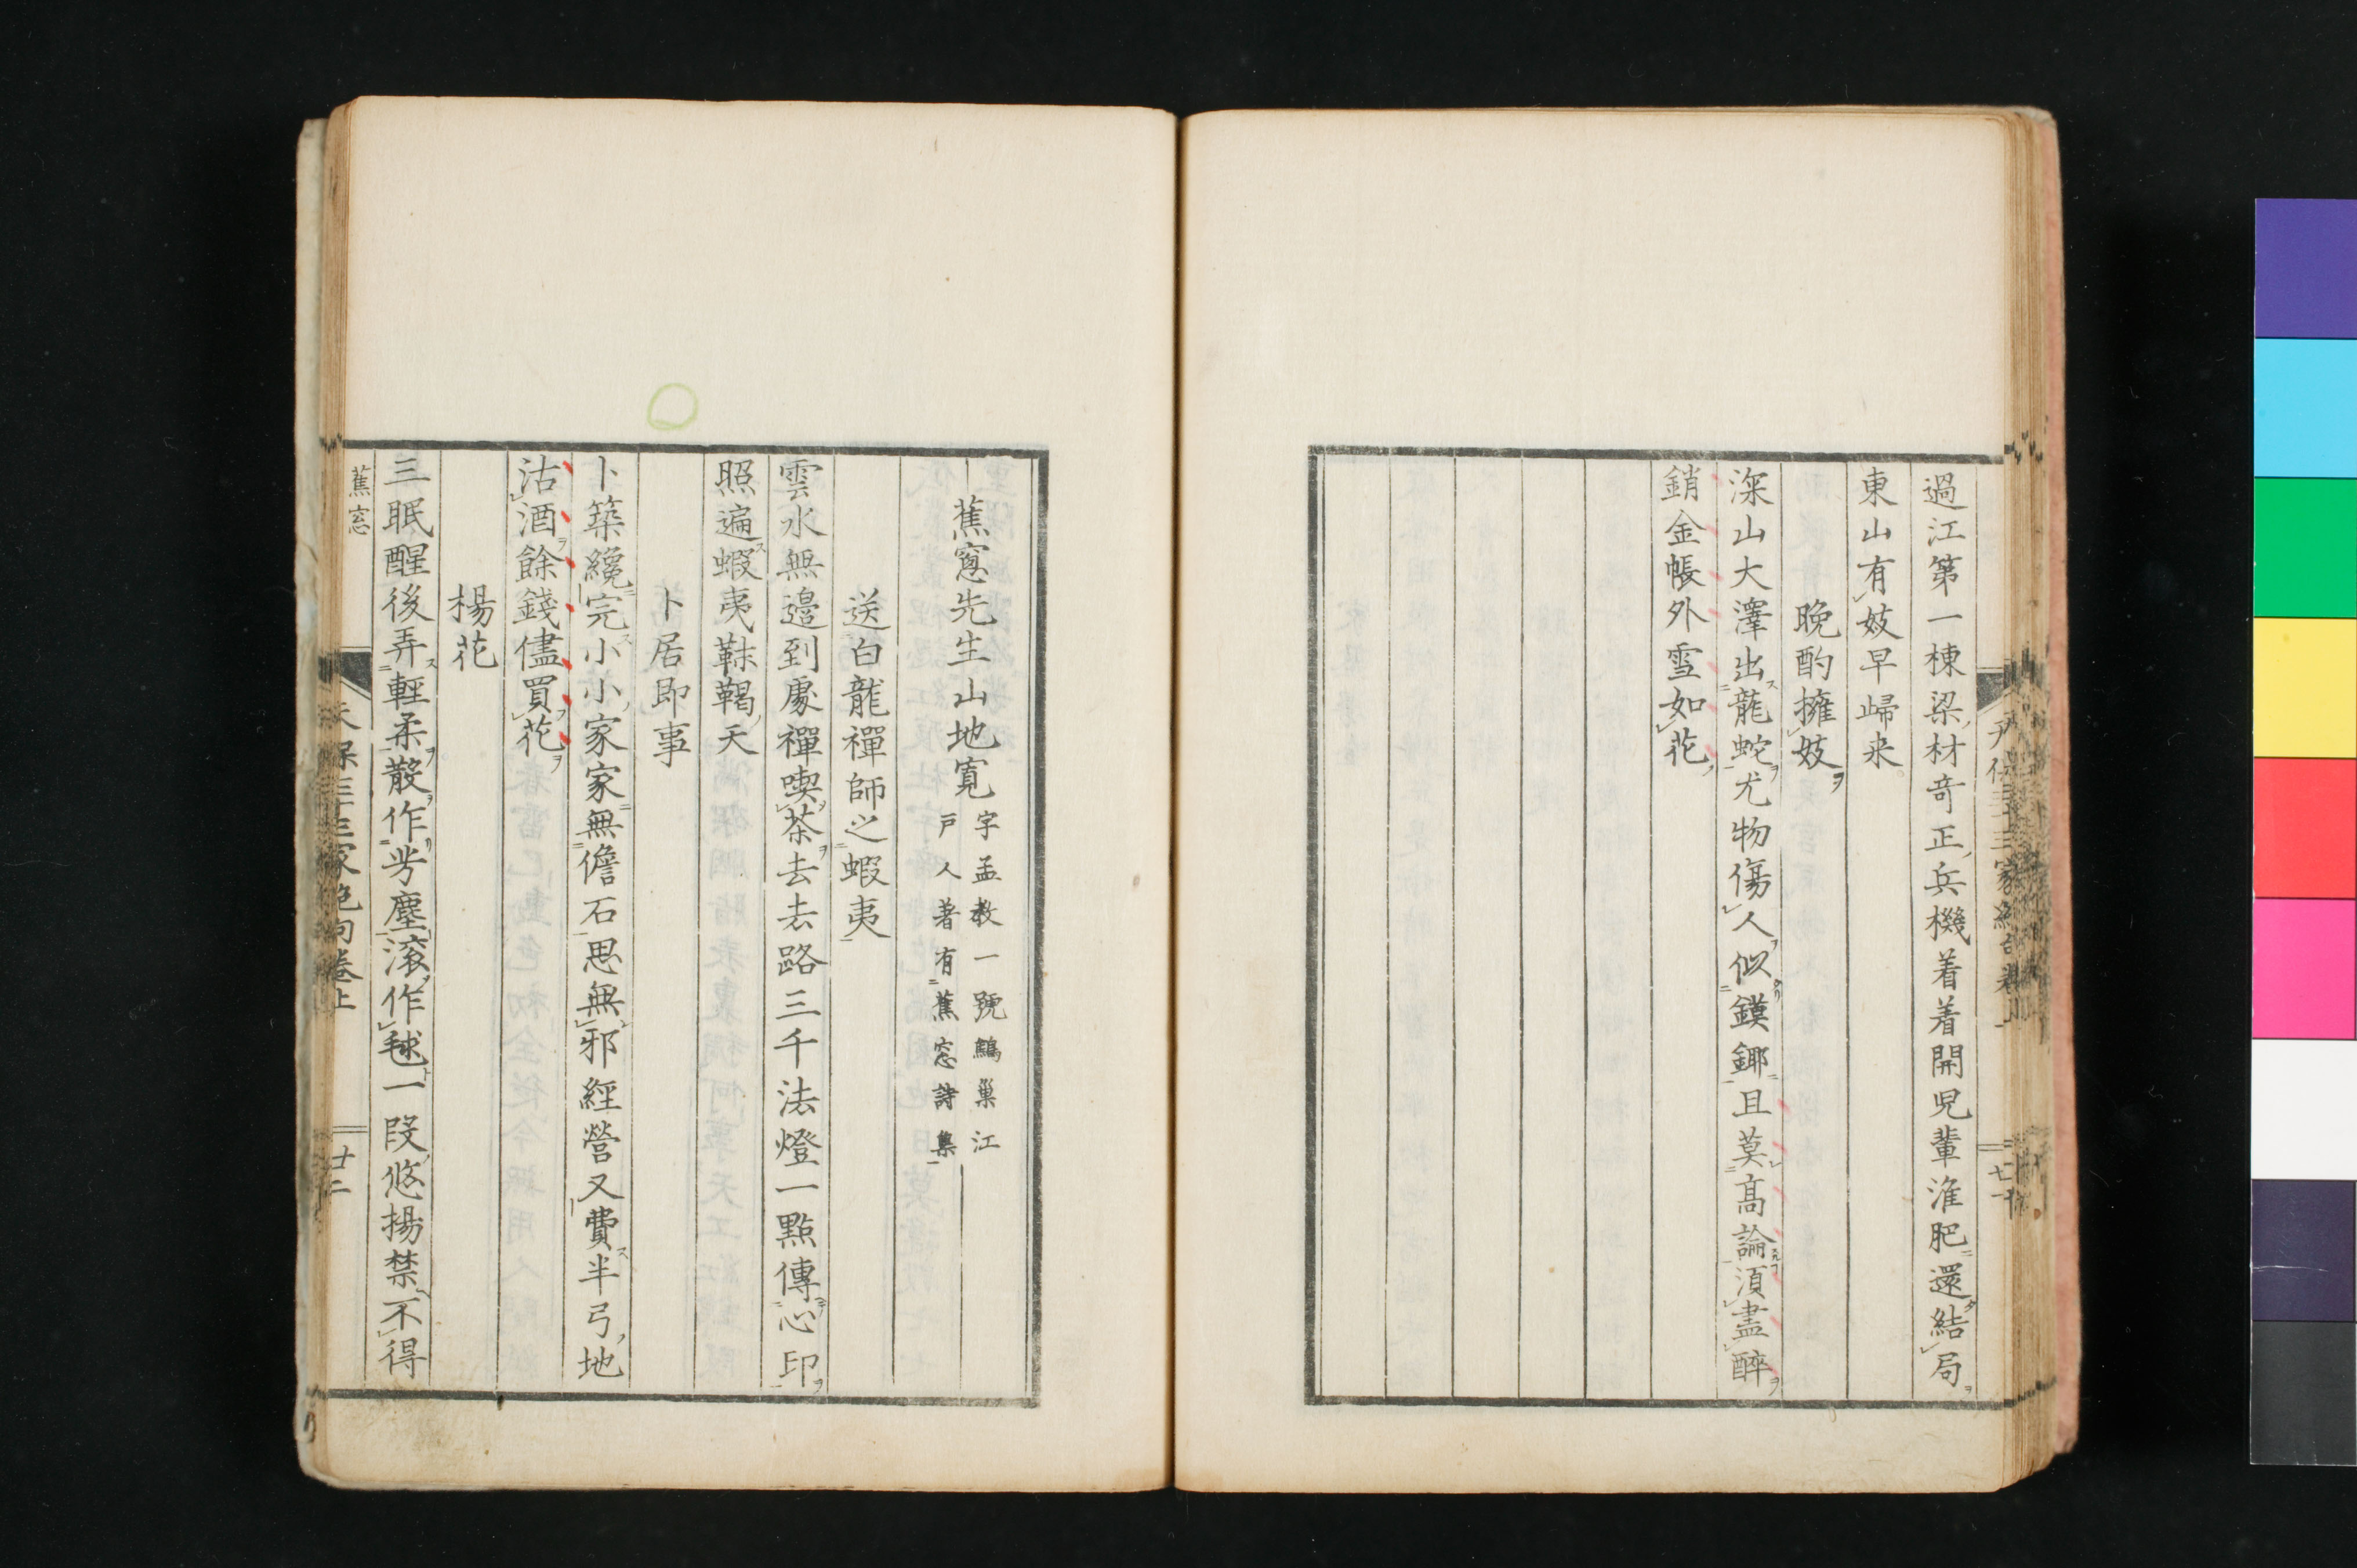 過江第一棟梁材奇正兵機着着開児輩淮肥還結局
東山有妓早歸来
晩酌擁妓
深山大澤出龍蛇尤物傷人似鏌鎁且莫高論須盡醉
銷金帳外雪如花
蕉窓先生山地寛
字孟教一號鷦巢江
戸人著有蕉窓詩集
送白龍禪師之蝦夷
雲水無邉到處禪喫茶去去路三千法燈一點傳心印
照遍蝦夷靺鞨天
卜居即事
卜築纔完小小家家無儋石思無邪經營又費半弓地
沽酒餘錢儘買花
楊花
三眠醒後弄輕柔散作芳塵滚作毬一段悠揚禁不得
蕉窓
天保三十三家絶句卷上
廿二